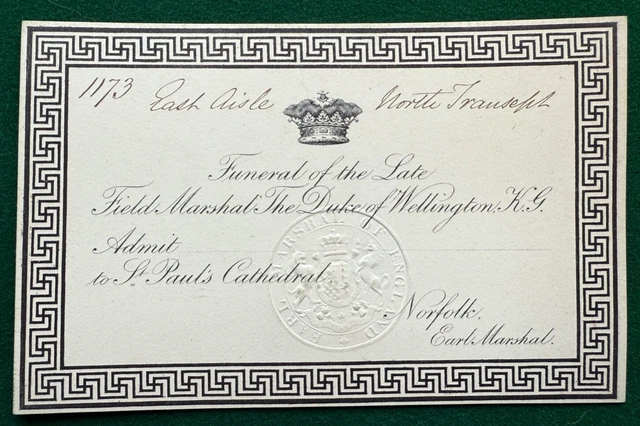 1173 East Aisle North Transept
Funeral of the Late
Field Marshal The Duke of Wellington, K.G.
Admit
to St. Paul's Cathedral
Norfolk.
Earl Marshal.
EARL MARSHAL OF ENGLAND